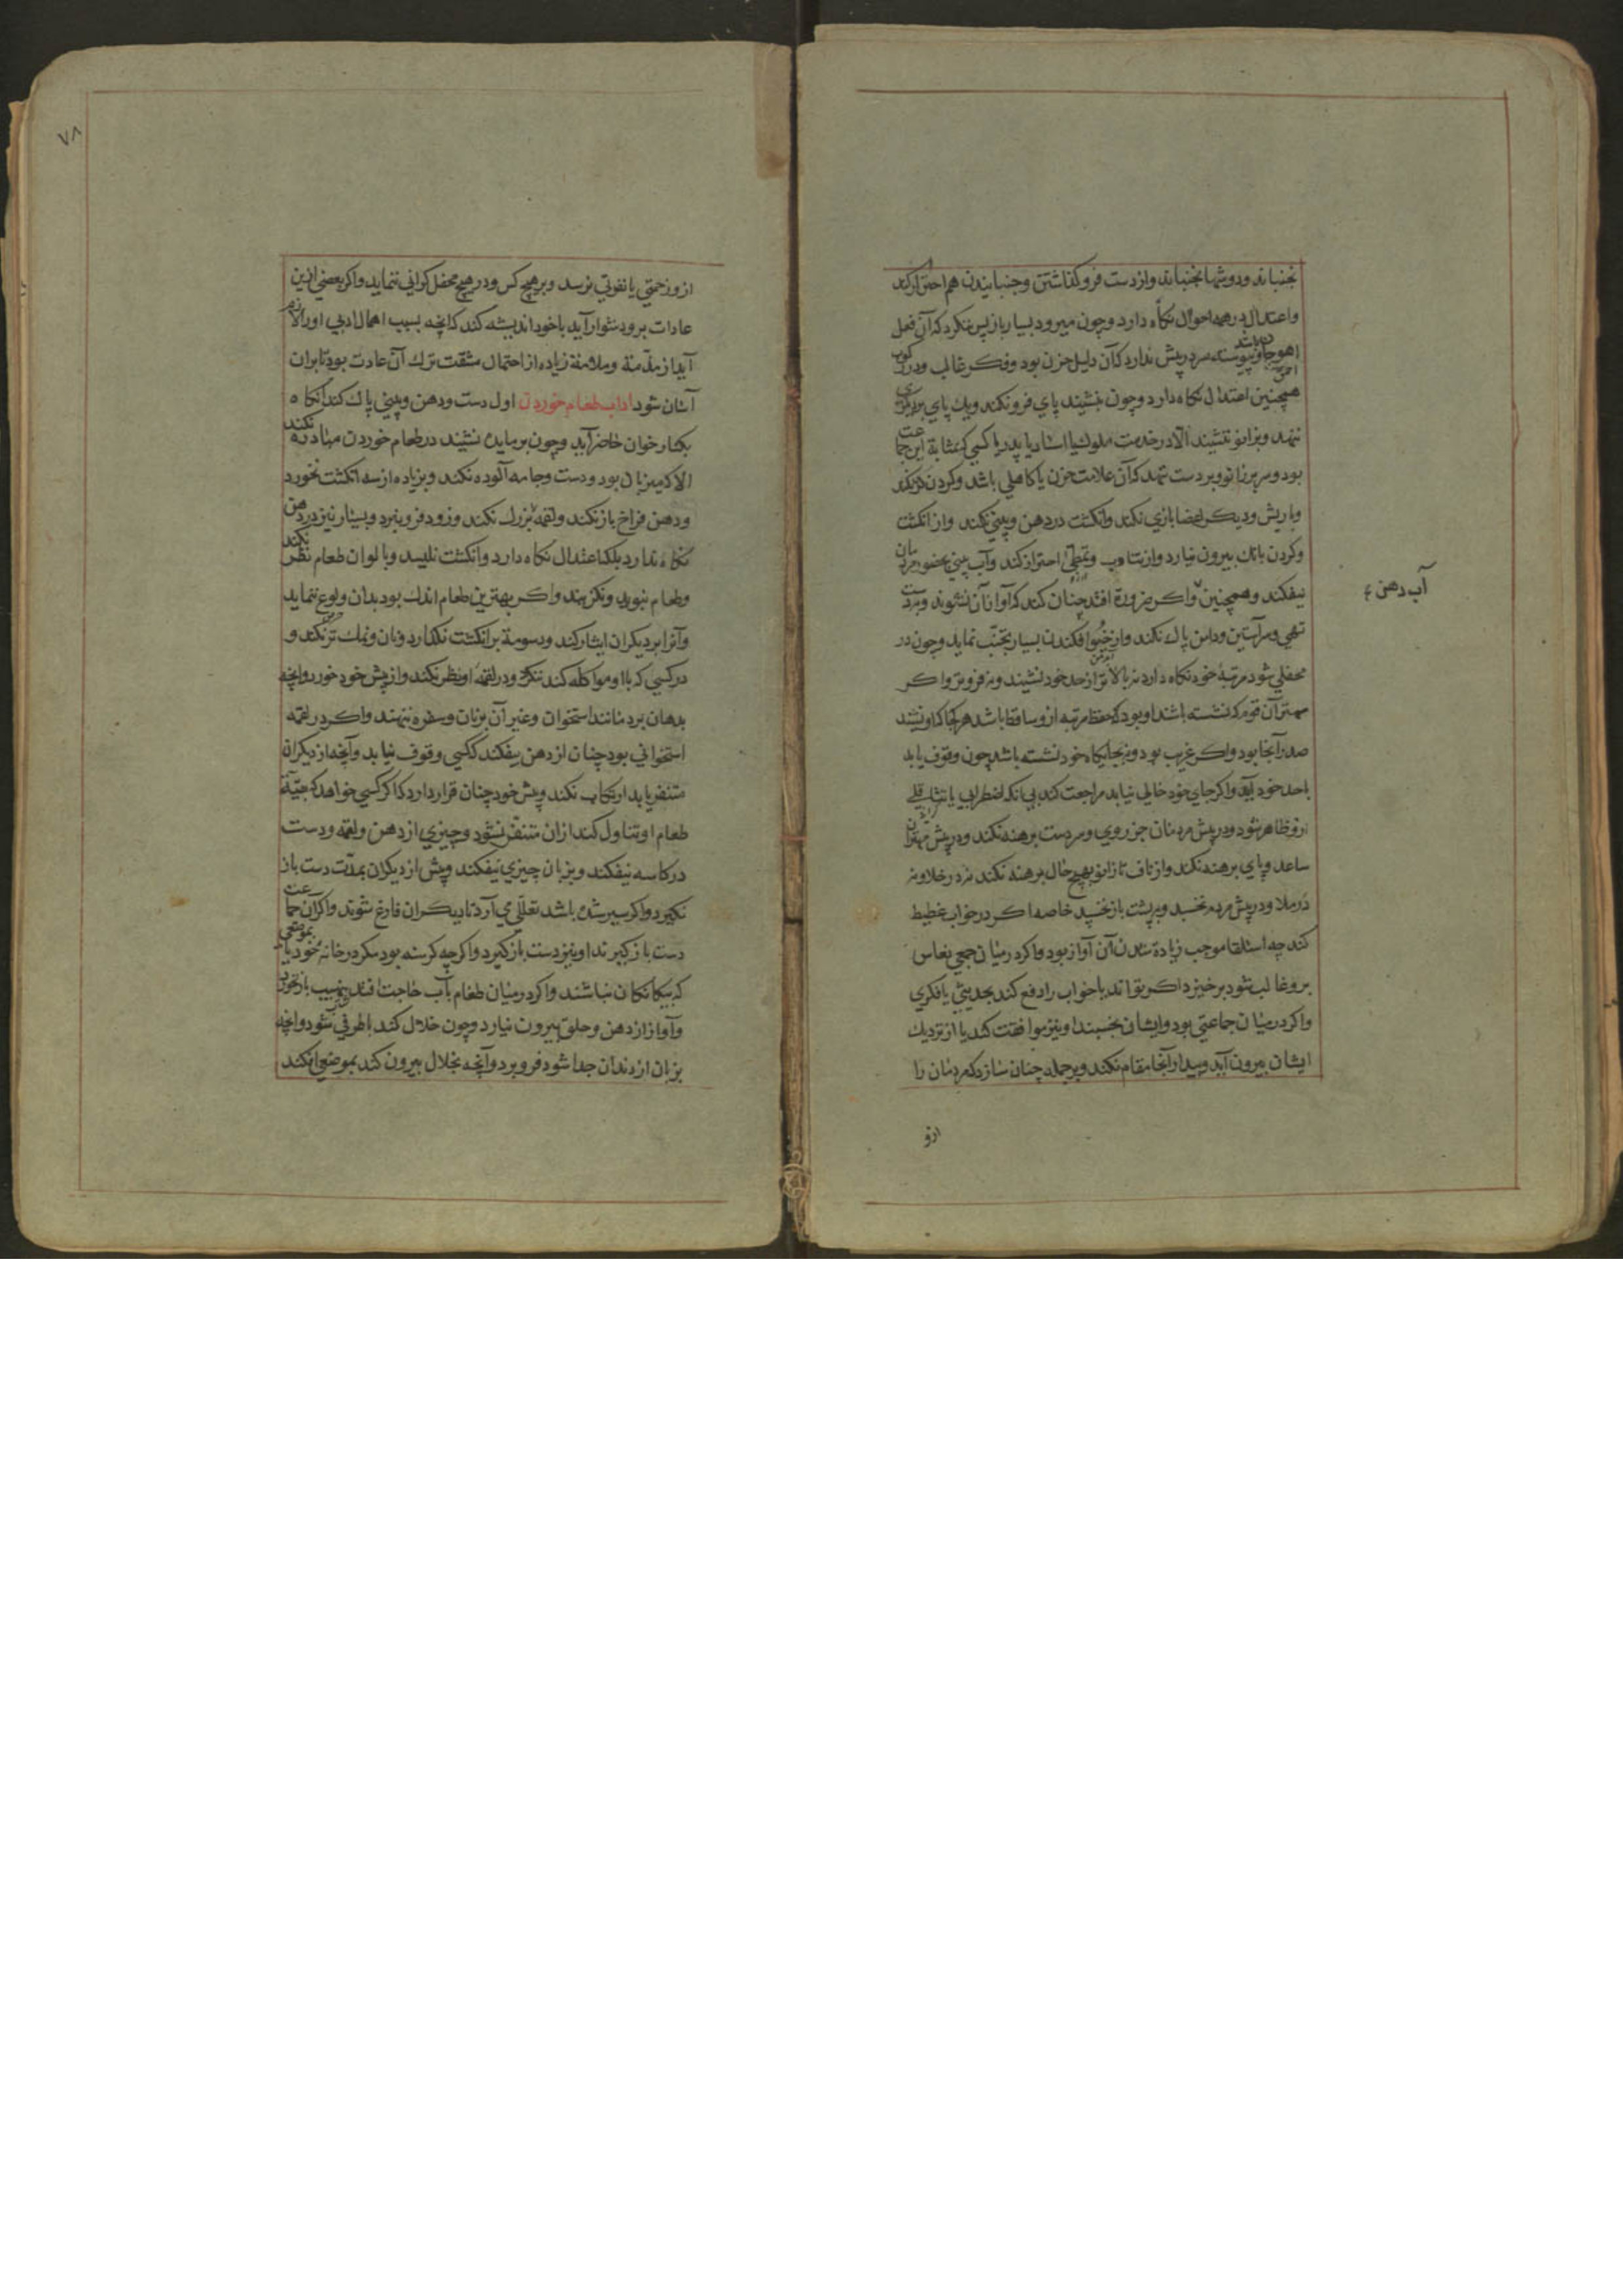 نجنباند و دوشها نجنباند و از دست فرو گذاشتن و جنبانیدن هم احتراز کند
و اعتدال در همه احوال نگاه دارد و چون میرود بسیار باز پس ننگرد که آن فعل
اهوجان باشد و پیوسته سر در پیش ندارد که آن دلیل حزن بود و فکر غالب و در رکوب
احمق
همچنین اعتدال نگاه دارد و چون بنشیند پای فرو نکند و یک پای بر دیگری
ننهد و بزانو ننشیند الا در خدمت ملوک یا استاد یا پدر یا کسی که بمثابه این جماعت
بود و سر بر زانو و بر دست ننهد که آن علامت حزن یا کاهلی باشد و گردن کژ نکند
و با ریش و دیگر اعضا بازی نکند و انگشت در دهن و بینی نکند و از انگشت
و گردن بانک بیرون نیارد و از تثاوب و تمطی احتراز کند و آب بینی بحضور مردمان
نیفکند و همچنین و اگر ضرورة افتد چنان کند که آواز آن نشنوند و بدست
آب دهن
تهی و سر آستین و دامن پاک نکند و از خیو افکندن بسیار تجنب نماید و چون در
محفلی شود مرتبهٔ خود نگاه دارد نه بالاتر از حد خود نشیند و نه فروتر و اگر
مهتر آن قوم که نشسته باشند او بود که حفظ مرتبه ازو ساقط باشد هر کجا که او نشیند
صدر آنجا بود و اگر غریب بود و نه بجایگاه خود نشسته باشد چون وقوف یابد
با حد خود آید و اگر جای خود خالی نیابد مراجعت کند بی آنکه اضطرابی یا تثاقلی
ازو ظاهر شود و در پیش مردمان جز روی و سر دست برهنه نکند و در پیش مهتران
ساعد و پای برهنه نکند و از ناف تا زانو بهیچ حال برهنه نکند نه در خلا و نه
در ملا و در پیش مردم نخسبد و بر پشت باز نخسپد خاصه اگر در خواب غطیط
کند چه استلقا موجب زیاده شدن آن آواز بود و اگر در میان جمعی نعاس
برو غالب شود برخیزد اگر تواند یا خواب را دفع کند بحدیثی یا فکری
و اگر در میان جماعتی بود و ایشان بخسبند او نیز موافقت کند یا از نزدیک
ایشان بیرون آید و بیدار آنجا مقام نکند و بر جمله چنان سازد که مردمان را
ازو
۷۸
ازو زحمتی یا نفرتی نرسد و بر هیچ کس و در هیچ محفل گرانی ننماید و اگر بعضی ازین
عادات برو دشوار آید با خود اندیشه کند که آنچه بسبب اهمال ادبی او را لازم
آید از مذمة و ملامة زیاده از احتمال مشقت ترک آن عادت بود تا بر آن
آسان شود اداب طعام خوردن اول دست و دهن و بینی پاک کند آنگاه
بکنار خوان حاضر آید و چون بر مایده نشیند در طعام خوردن مبادره نکند
الا که میزبان بود و دست و جامه آلوده نکند و بزیاده از سه انگشت نخورد
و دهن فراخ باز نکند و لقمه بزرگ نکند و زود فرو نبرد و بسیار نیز در دهن
نگاه ندارد بلکه اعتدال نگاه دارد و انگشت نلیسد و بالوان طعام نظر نکند
و طعام نبوید و نگزیند و اگر بهترین طعام اندک بود بدان ولوع ننماید
و آنرا بر دیگران ایثار کند و دسومة بر انگشت نگذارد و نان و نمک تر نکند و
در کسی که با او مواکله کند ننگرد و در لقمهٔ او نظر نکند و از پیش خود خورد و آنچه
بدهان برد مانند استخوان و غیر آن بر نان و سفره ننهد و اگر در لقمه
استخوانی بود چنان از دهن بیفکند که کسی وقوف نیابد و آنچه از دیگران
متنفر یابد ارتکاب نکند و پیش خود چنان قرار دارد که اگر کسی خواهد که بقیهٔ
طعام او تناول کند از آن متنفر نشود و چیزی از دهن و لقمه و دست
در کاسه نیفکند و بر نان چیزی نیفکند و پیش از دیگران بمدت دست باز
نگیرد و اگر سیر شده باشد تعللی می آرد تا دیگران فارغ شوند و اگر آن جماعت
دست باز گیرند او نیز دست باز گیرد و اگر چه گرسنه بود مگر در خانهٔ خود یا بموضعی
که بیگانگان نباشند و اگر در میان طعام بآب حاجت افتد بنهیب باز نخورد
و آواز از دهن و حلق بیرون نیارد و چون خلال کند با طرفی شود و آنچه
بزبان از دندان جدا شود فرو برد و آنچه بخلال بیرون کند بموضعی افکند